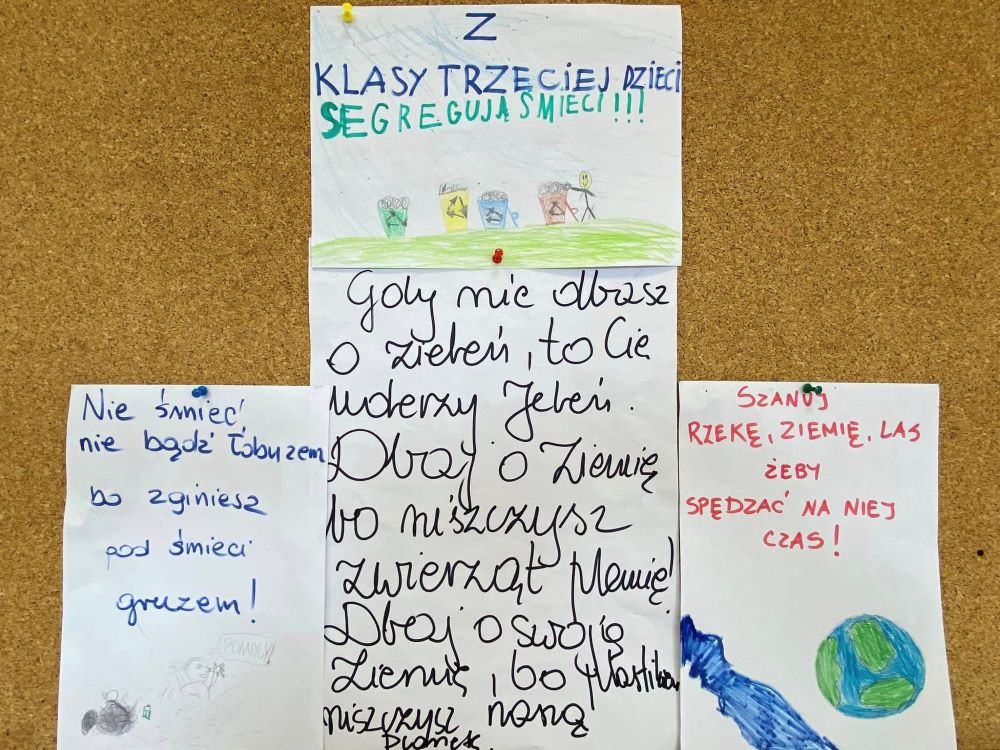 Z
KLASY TRZECIEJ DZIECI
SEGREGUJĄ ŚMIECI!!!
Gdy nie dbasz
o zieleń, to Cię
uderzy Jeleń.
Dbaj o Ziemię
bo niszczysz
zwierząt plemię!
Dbaj o swoją
Ziemię, bo
niszczysz naszą
Planetę.
Nie śmieć,
nie bądź łobuzem
bo zginiesz
pod śmieci
gruzem!
POMOCY!
SZANUJ
RZEKĘ, ZIEMIĘ, LAS
ŻEBY
SPĘDZAĆ NA NIEJ
CZAS!